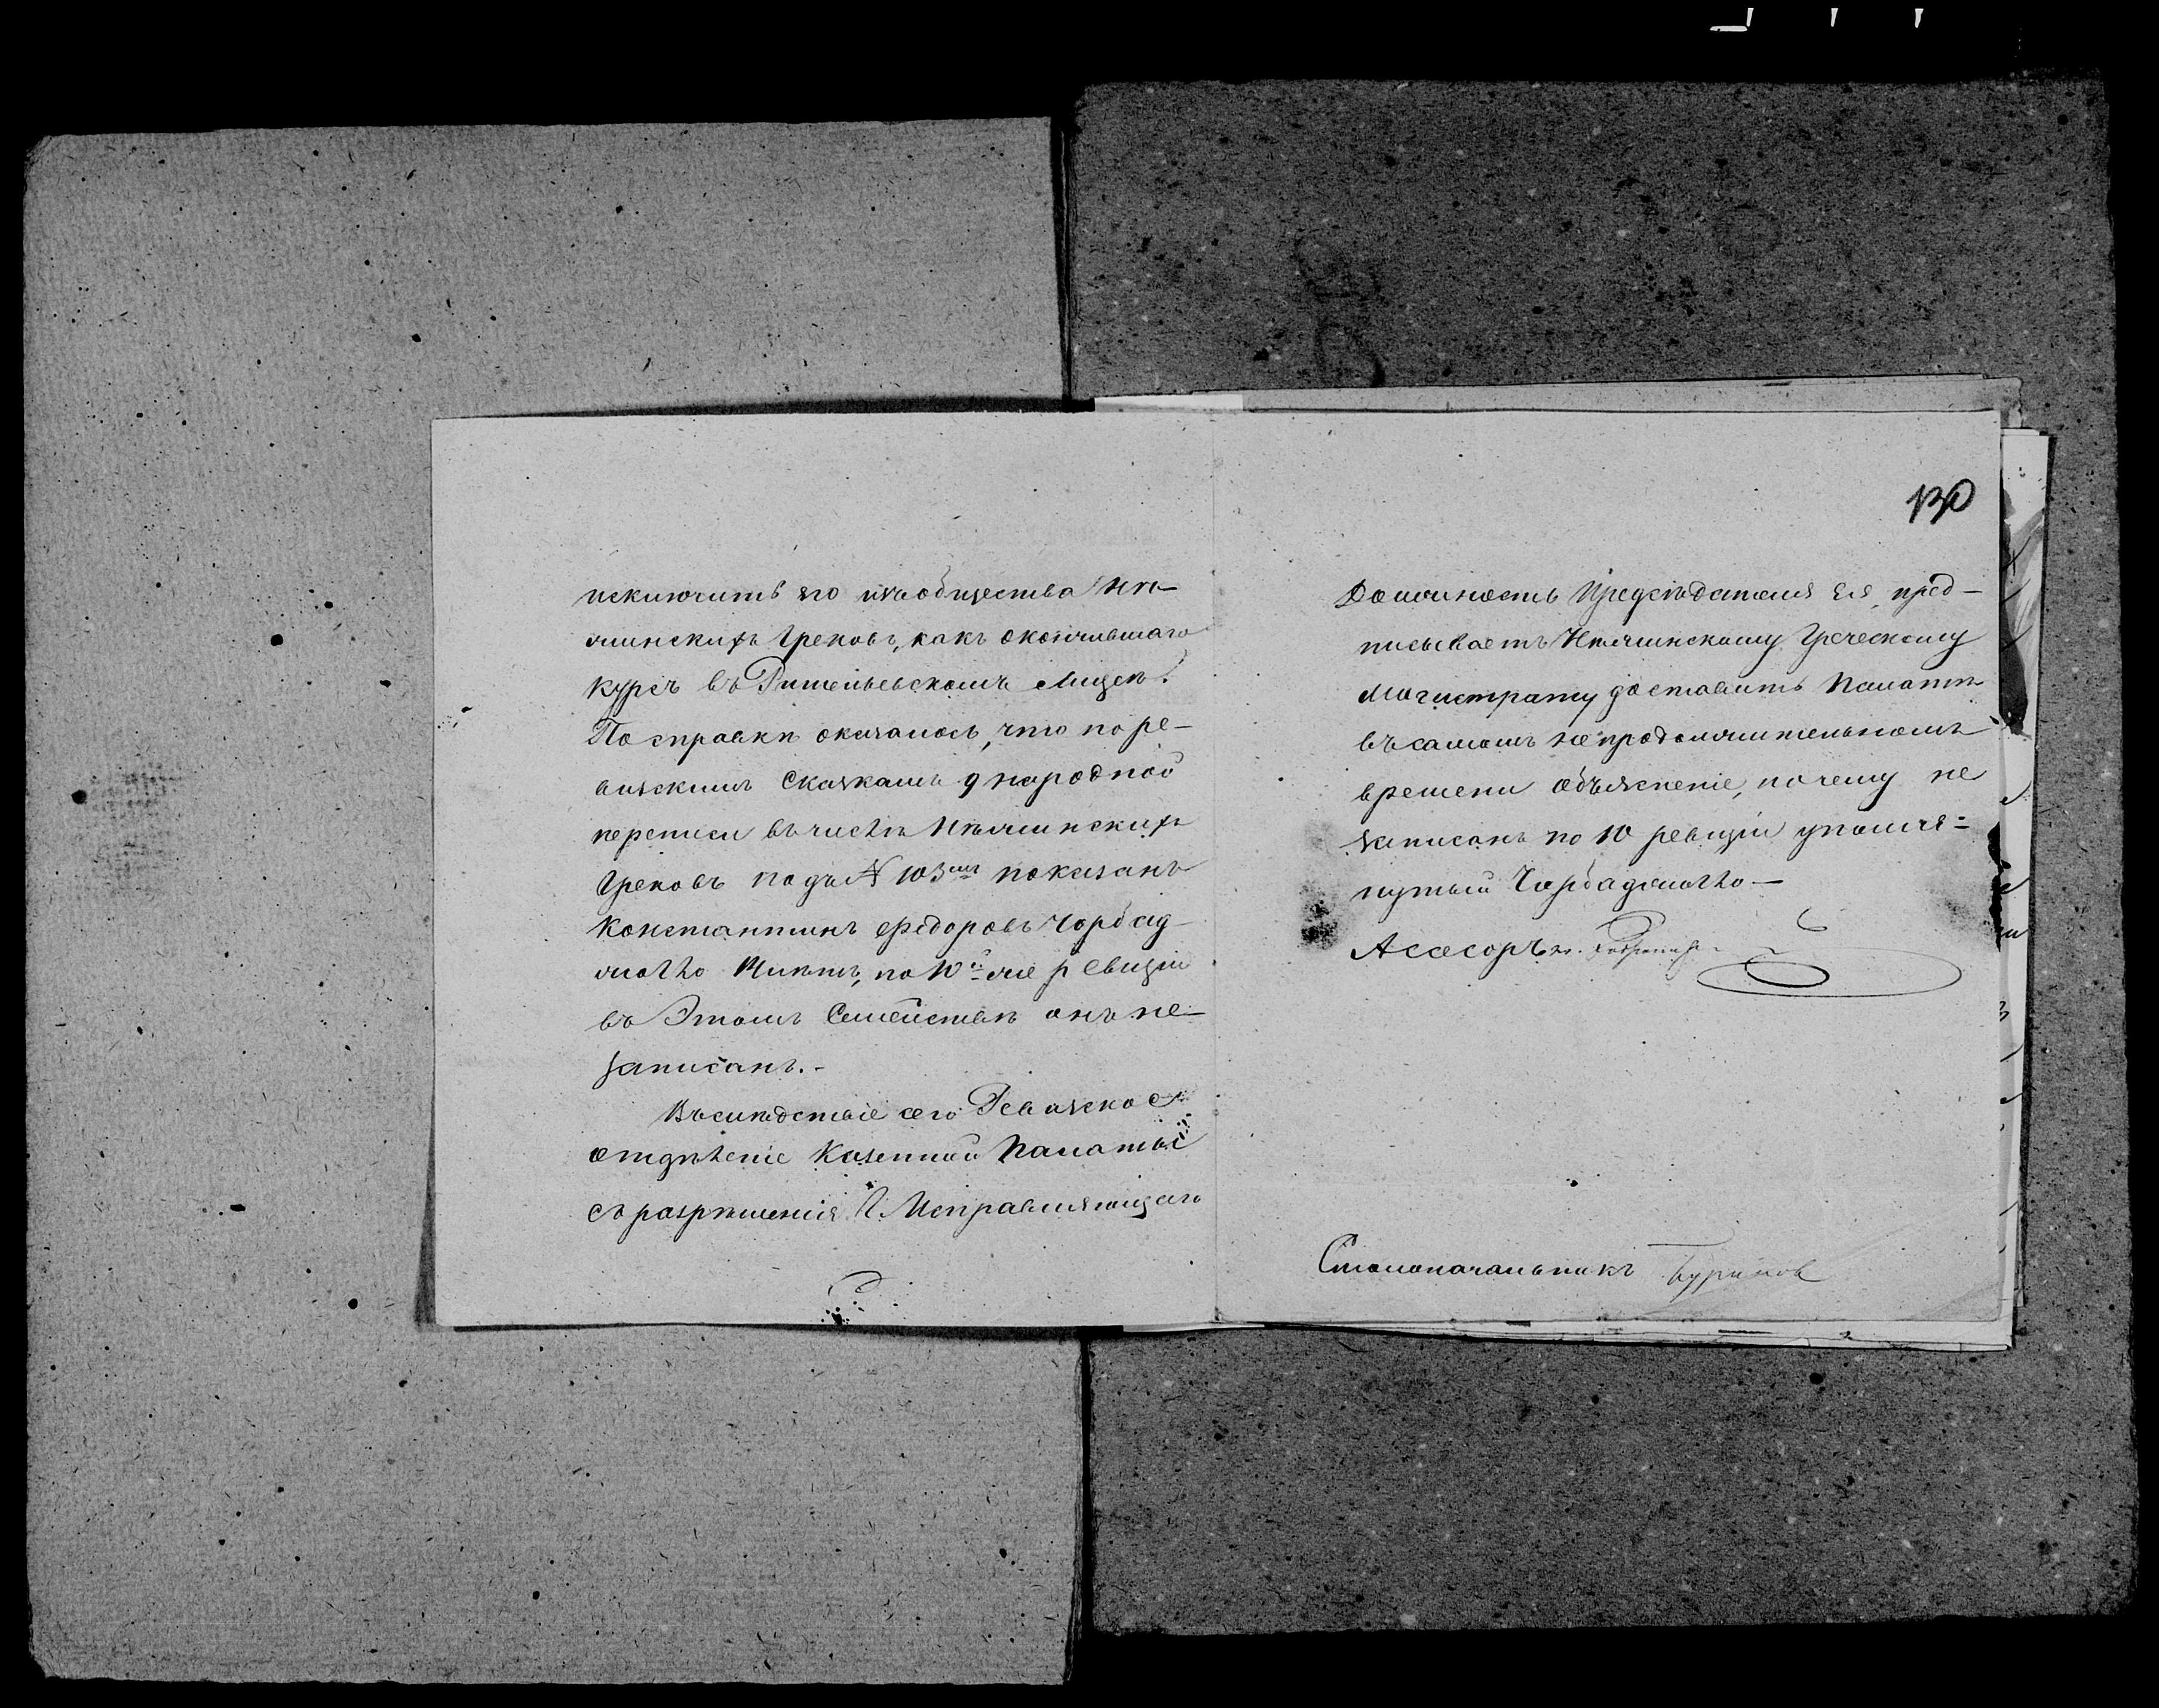 исключить его изъ общества Нѣ-
жинскихъ Грековъ, какъ окончившаго
курсъ въ Ришельевскомъ Лицеѣ.
По справкѣ оказалось, что по ре-
визскимъ Сказкамъ 9 народной
переписи въ числѣ Нѣжинскихъ
Грековъ подъ № 103мъ показанъ
Константинъ Федоровъ Чорбад-
жогло по 10й же ревизіи
въ Этомъ Семействѣ онъ не
записанъ.-
Въ слѣдствіе сего Ревизское
отдѣленіе Казенной Палаты
съ разрѣшенія Г. Исправляющаго
130
Должность Предсѣдателя Ея, пред-
писываетъ Нѣжинскому Греческому
Магистрату доставить Палатѣ
въ самомъ непродолжительномъ
времени Объясненіе, почему не
записанъ по 10 ревизіи упомя=
нутый Чорбаджогло—
Асесоръ
Столоначальникъ